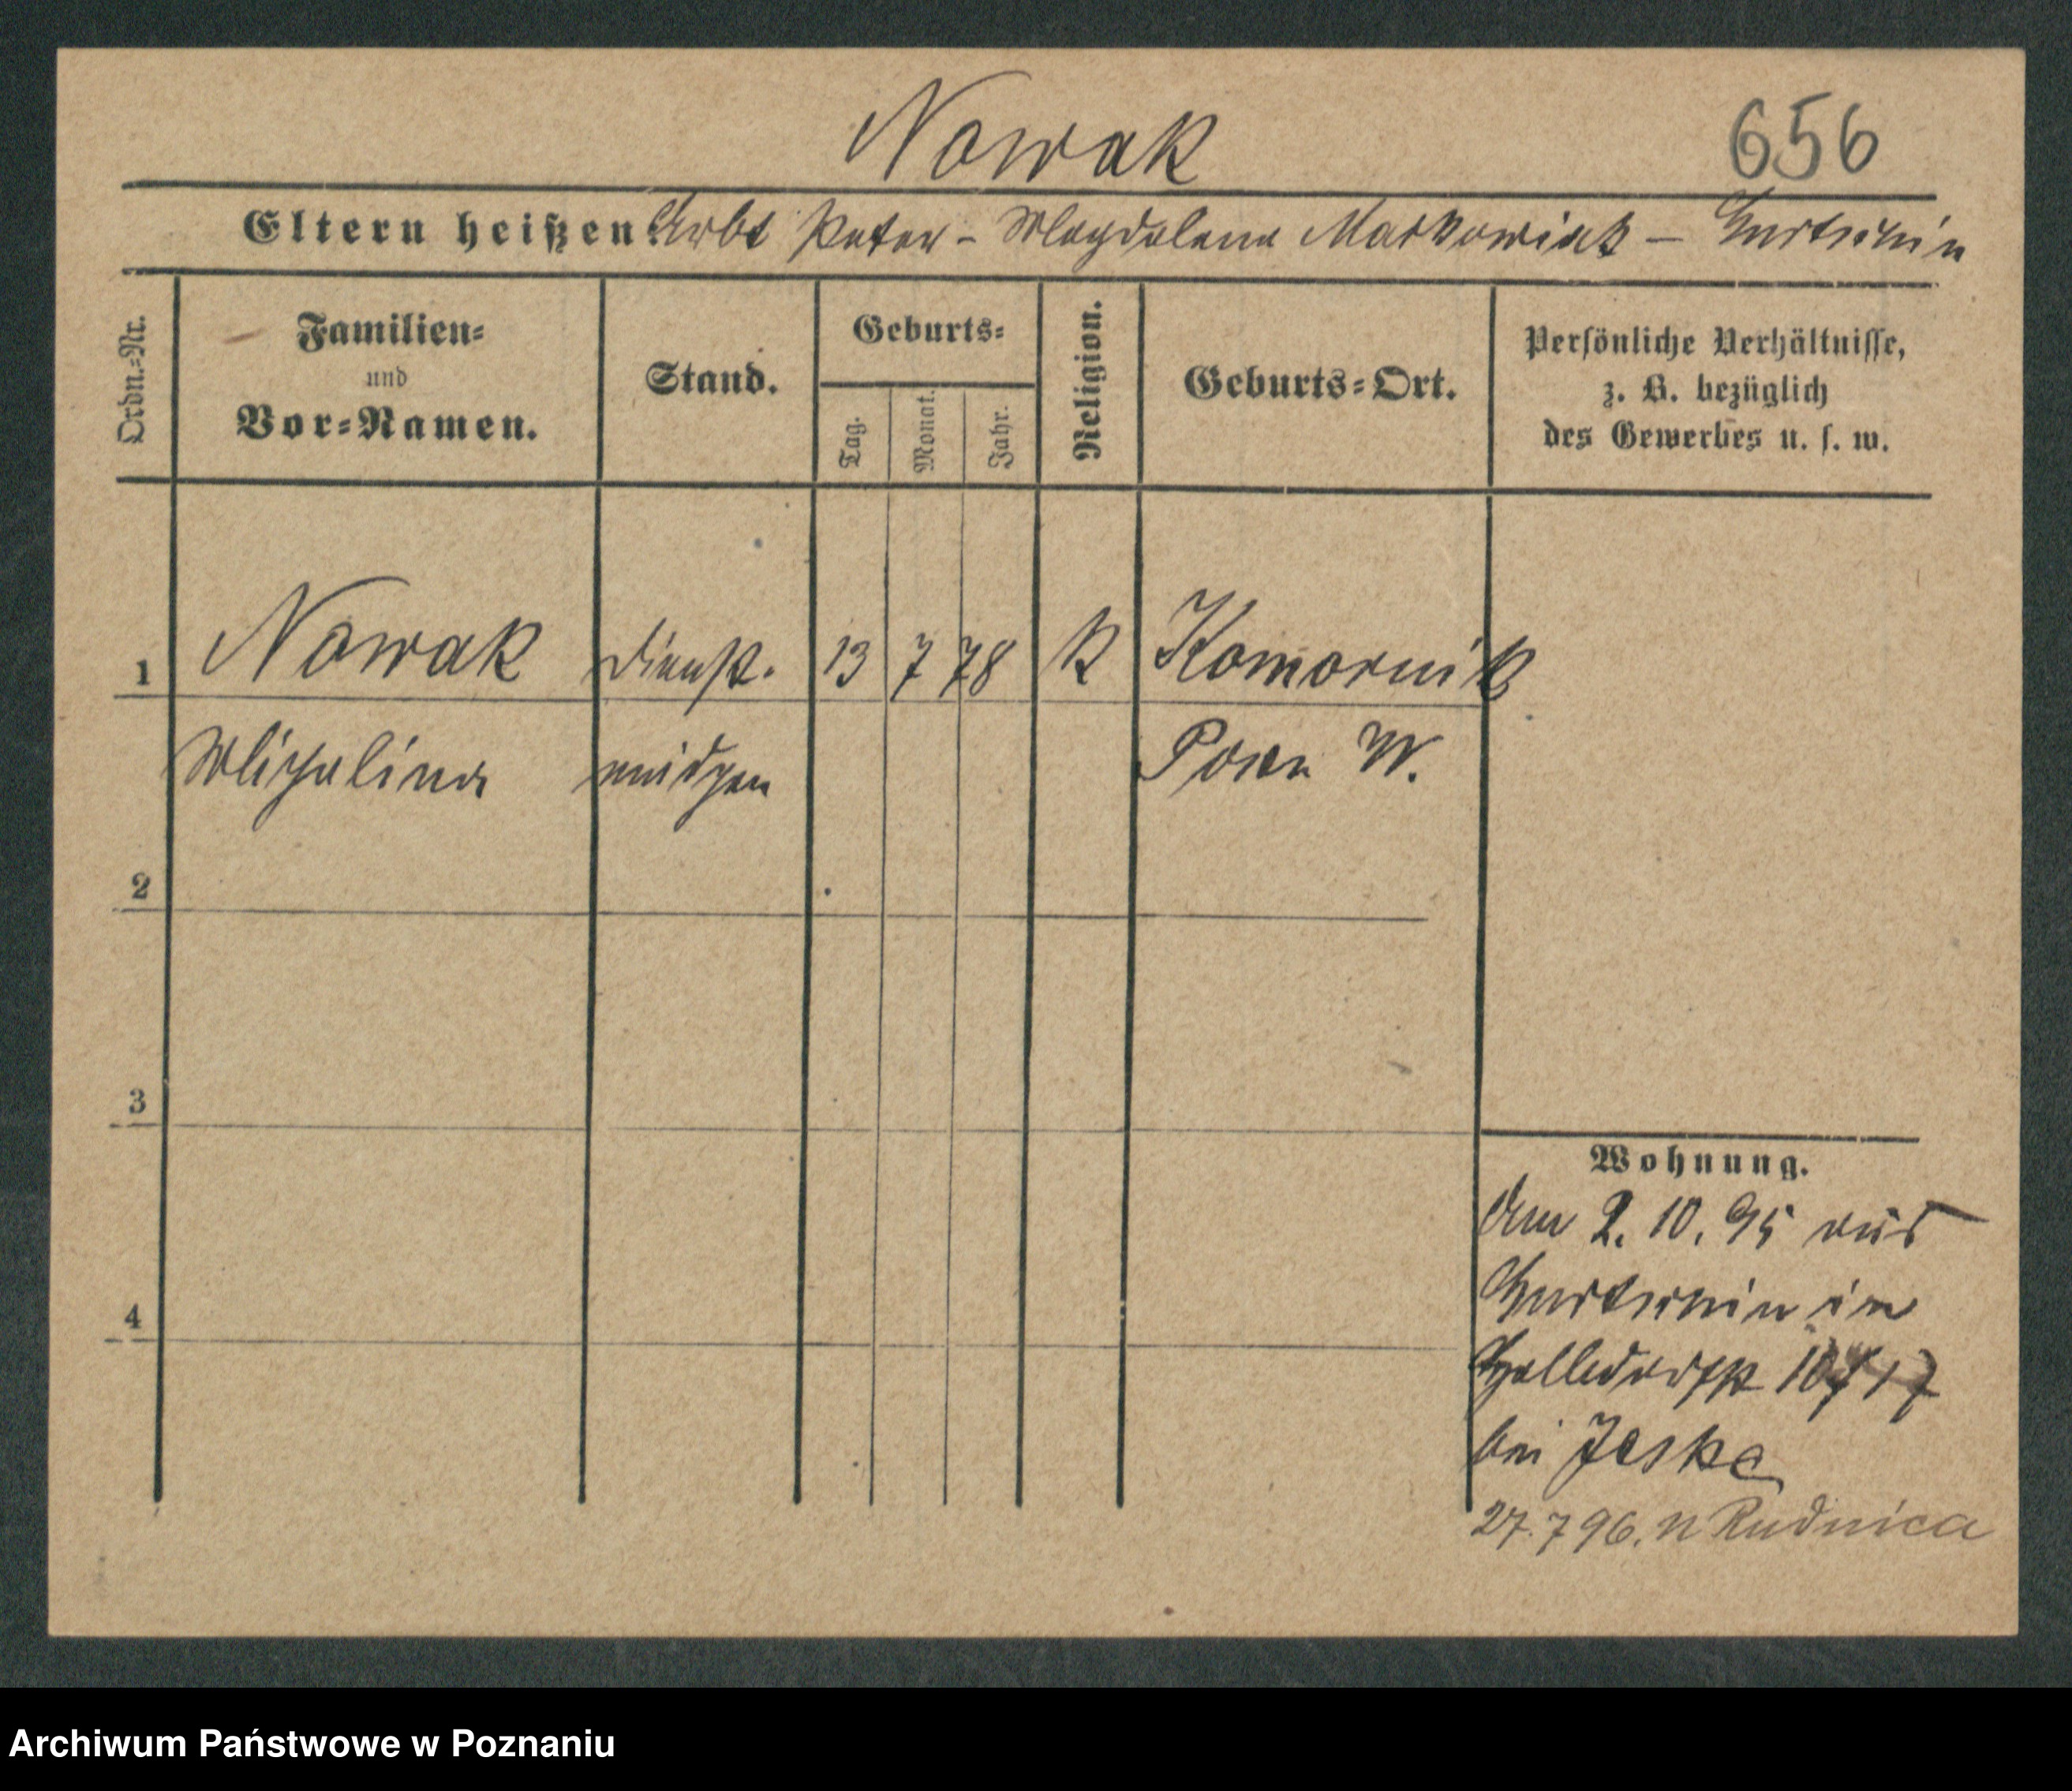 Nowak 656
Eltern heißen: Arbt Peter – Magdalena Markowiak – Gurtschin
Ordn.-Nr.
Familien-
und
Vor-Namen.
Stand.
Geburts-
Tag.
Monat.
Jahr.
Religion.
Geburts-Ort.
Persönliche Verhältnisse,
z. B. bezüglich
des Gewerbes u. s. w.
1 Nowak Dienst- 13 7 78 K Komornik
Michalina mädchen Posen W.
2
3
4
Wohnung.
Am 2. 10. 95 aus
Gurtschin in
bei Jeske
27. 7 96. n Rudnica
Archiwum Państwowe w Poznaniu